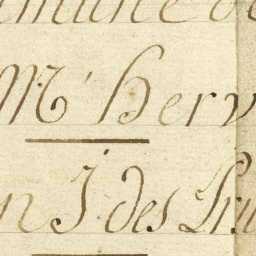 mune de
Mr Herv
n J. des Pru